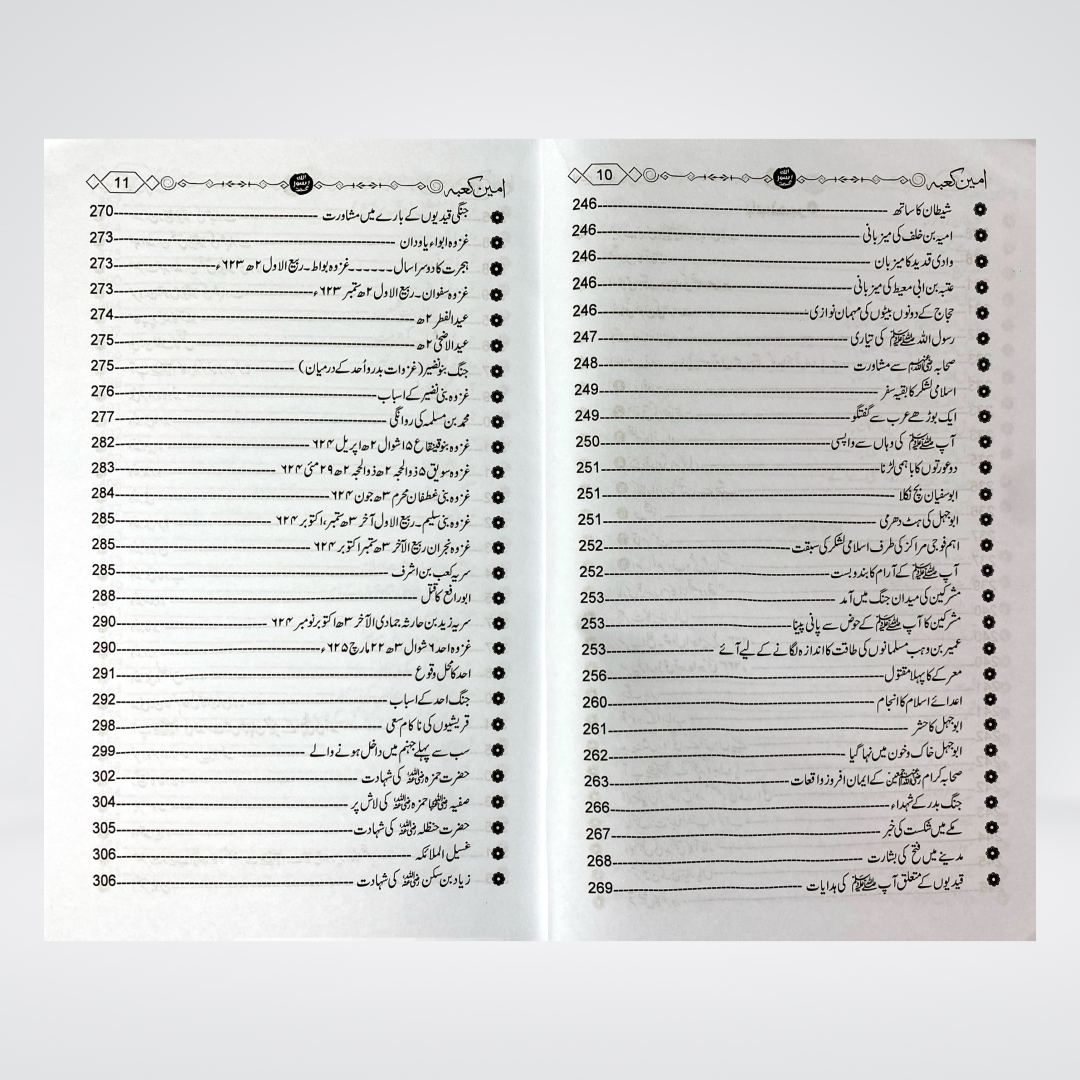 امین کعبہ 10
شیطان کا ساتھ 246
امیہ بن خلف کی میزبانی 246
وادی قدید کا میزبان 246
عتبہ بن ابی معیط کی میزبانی 246
حجاج کے دونوں بیٹوں کی مہمان نوازی 246
رسول اللہ ﷺ کی تیاری 247
صحابہ رضی اللہ عنہم سے مشاورت 248
اسلامی لشکر کا بقیہ سفر 249
ایک بوڑھے عرب سے گفتگو 249
آپ ﷺ کی وہاں سے واپسی 250
دو عورتوں کا باہمی لڑنا 251
ابوسفیان بچ نکلا 251
ابوجہل کی ہٹ دھرمی 251
اہم فوجی مراکز کی طرف اسلامی لشکر کی سبقت 252
آپ ﷺ کے آرام کا بندوبست 252
مشرکین کی میدان جنگ میں آمد 253
مشرکین کا آپ ﷺ کے حوض سے پانی پینا 253
عمیر بن وہب مسلمانوں کی طاقت کا اندازہ لگانے کے لیے آئے 253
معرکے کا پہلا مقتول 256
اعدائے اسلام کا انجام 260
ابوجہل کا حشر 261
ابوجہل خاک و خون میں نہا گیا 262
صحابہ کرام رضی اللہ عنہم اجمعین کے ایمان افروز واقعات 263
جنگ بدر کے شہداء 266
مکے میں شکست کی خبر 267
مدینے میں فتح کی بشارت 268
قیدیوں کے متعلق آپ ﷺ کی ہدایات 269
امین کعبہ 11
جنگی قیدیوں کے بارے میں مشاورت 270
غزوہ ابواء یا ودان 273
ہجرت کا دوسرا سال۔۔۔۔۔۔غزوہ بواط۔ربیع الاول ۲ھ ۶۲۳ء 273
غزوہ سفوان۔ربیع الاول ۲ھ ستمبر ۶۲۳ء 273
عید الفطر ۲ھ 274
عید الاضحیٰ ۲ھ 275
جنگ بنو نضیر (غزوات بدر و اُحد کے درمیان) 275
غزوہ بنی نضیر کے اسباب 276
محمد بن مسلمہ کی روانگی 277
غزوہ بنو قینقاع ۱۵ شوال ۲ھ اپریل ۶۲۴ 282
غزوہ سویق ۵ ذوالحجہ ۲ھ ذوالحجہ ۲ھ ۲۹ مئی ۶۲۴ 283
غزوہ بنی غطفان محرم ۳ھ جون ۶۲۴ 284
غزوہ بنی سلیم۔ربیع الاول آخر ۳ھ ستمبر، اکتوبر ۶۲۴ 285
غزوہ نجران ربیع الآخر ۳ھ ستمبر اکتوبر ۶۲۴ 285
سریہ کعب بن اشرف 285
ابو رافع کا قتل 288
سریہ زید بن حارثہ جمادی الآخر ۳ھ اکتوبر نومبر ۶۲۴ 290
غزوہ احد ۶ شوال ۳ھ ۲۲ مارچ ۶۲۵ء 290
احد کا محل وقوع 291
جنگ احد کے اسباب 292
قریشیوں کی ناکام سعی 298
سب سے پہلے جہنم میں داخل ہونے والے 299
حضرت حمزہ رضی اللہ عنہ کی شہادت 302
صفیہ رضی اللہ عنہا حمزہ رضی اللہ عنہ کی لاش پر 304
حضرت حنظلہ رضی اللہ عنہ کی شہادت 305
غسیل الملائکہ 306
زیاد بن سکن رضی اللہ عنہ کی شہادت 306